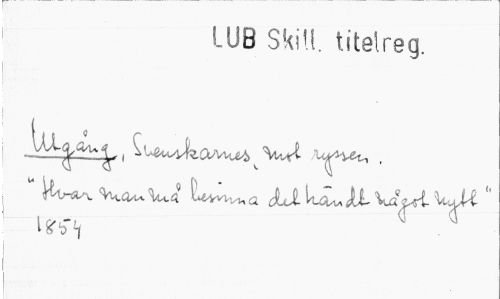 LUB Skill. titelreg.
Utgång, Svenskarnes, mot ryssen.
"Hvar man må besinna det händt något nytt"
1854